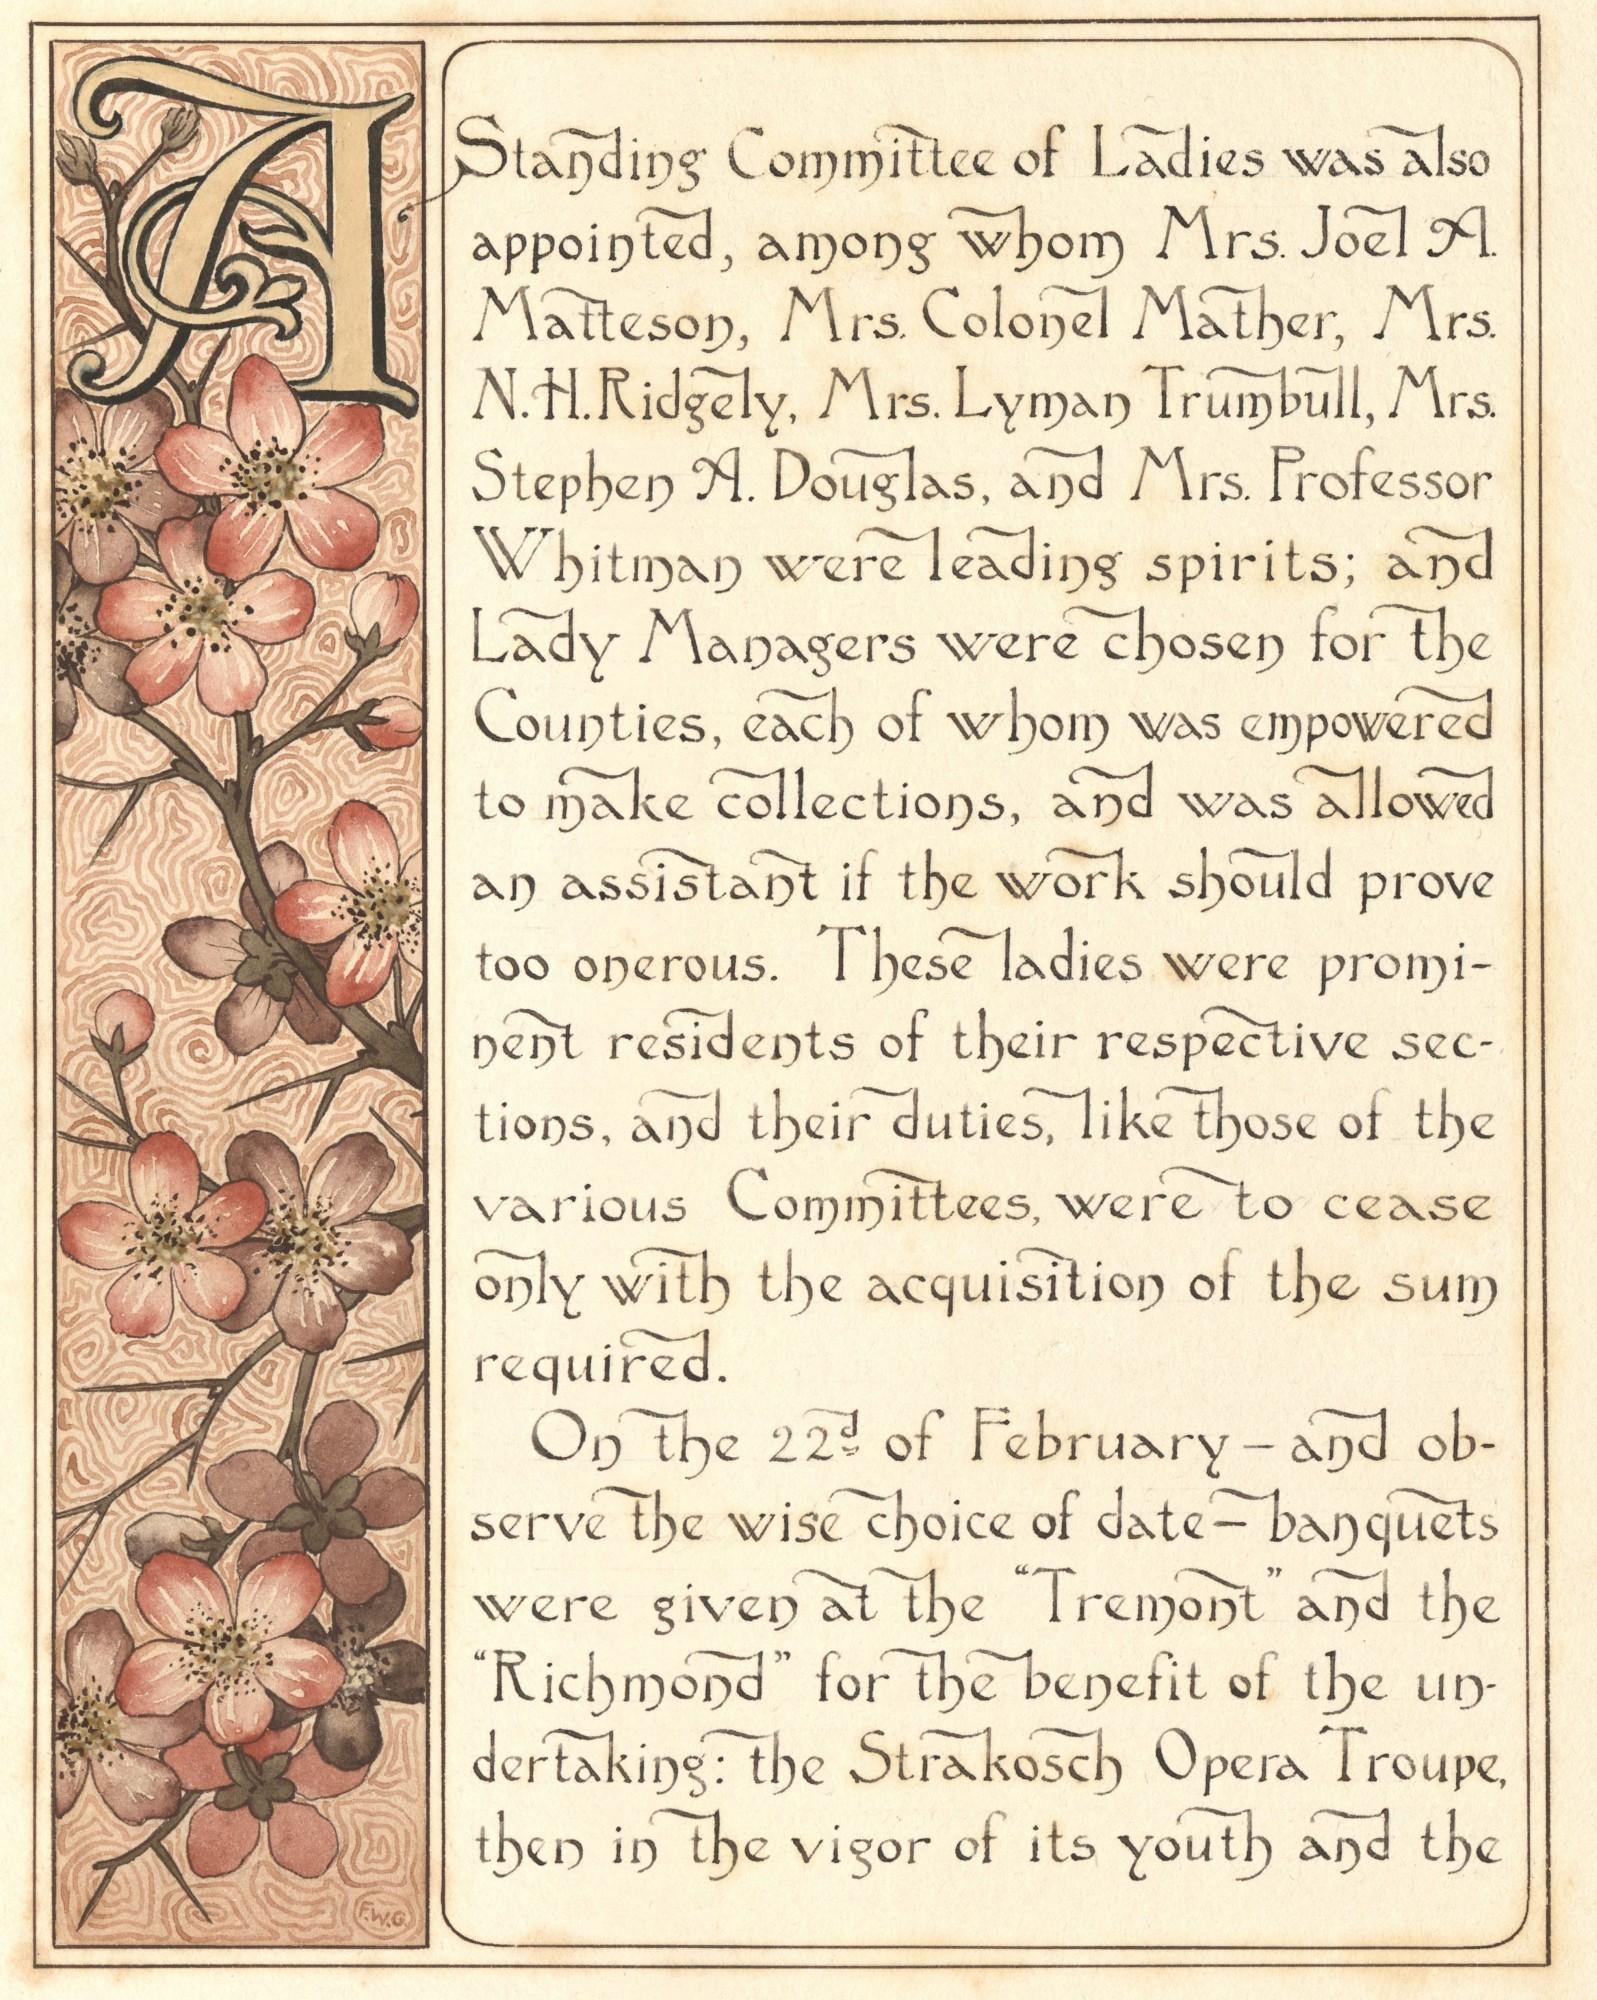 A Standing Committee of Ladies was also
appointed, among whom Mrs. Joel A.
Matteson, Mrs. Colonel Mather, Mrs.
N. H. Ridgely, Mrs. Lyman Trumbull, Mrs.
Stephen A. Douglas, and Mrs. Professor
Whitman were leading spirits; and
Lady Managers were chosen for the
Counties, each of whom was empowered
to make collections, and was allowed
an assistant if the work should prove
too onerous. These ladies were promi-
nent residents of their respective sec-
tions, and their duties, like those of the
various Committees, were to cease
only with the acquisition of the sum
required.
On the 22d of February – and ob-
serve the wise choice of date – banquets
were given at the "Tremont" and the
"Richmond" for the benefit of the un-
dertaking: the Strakosch Opera Troupe,
then in the vigor of its youth and the
F.W.G.